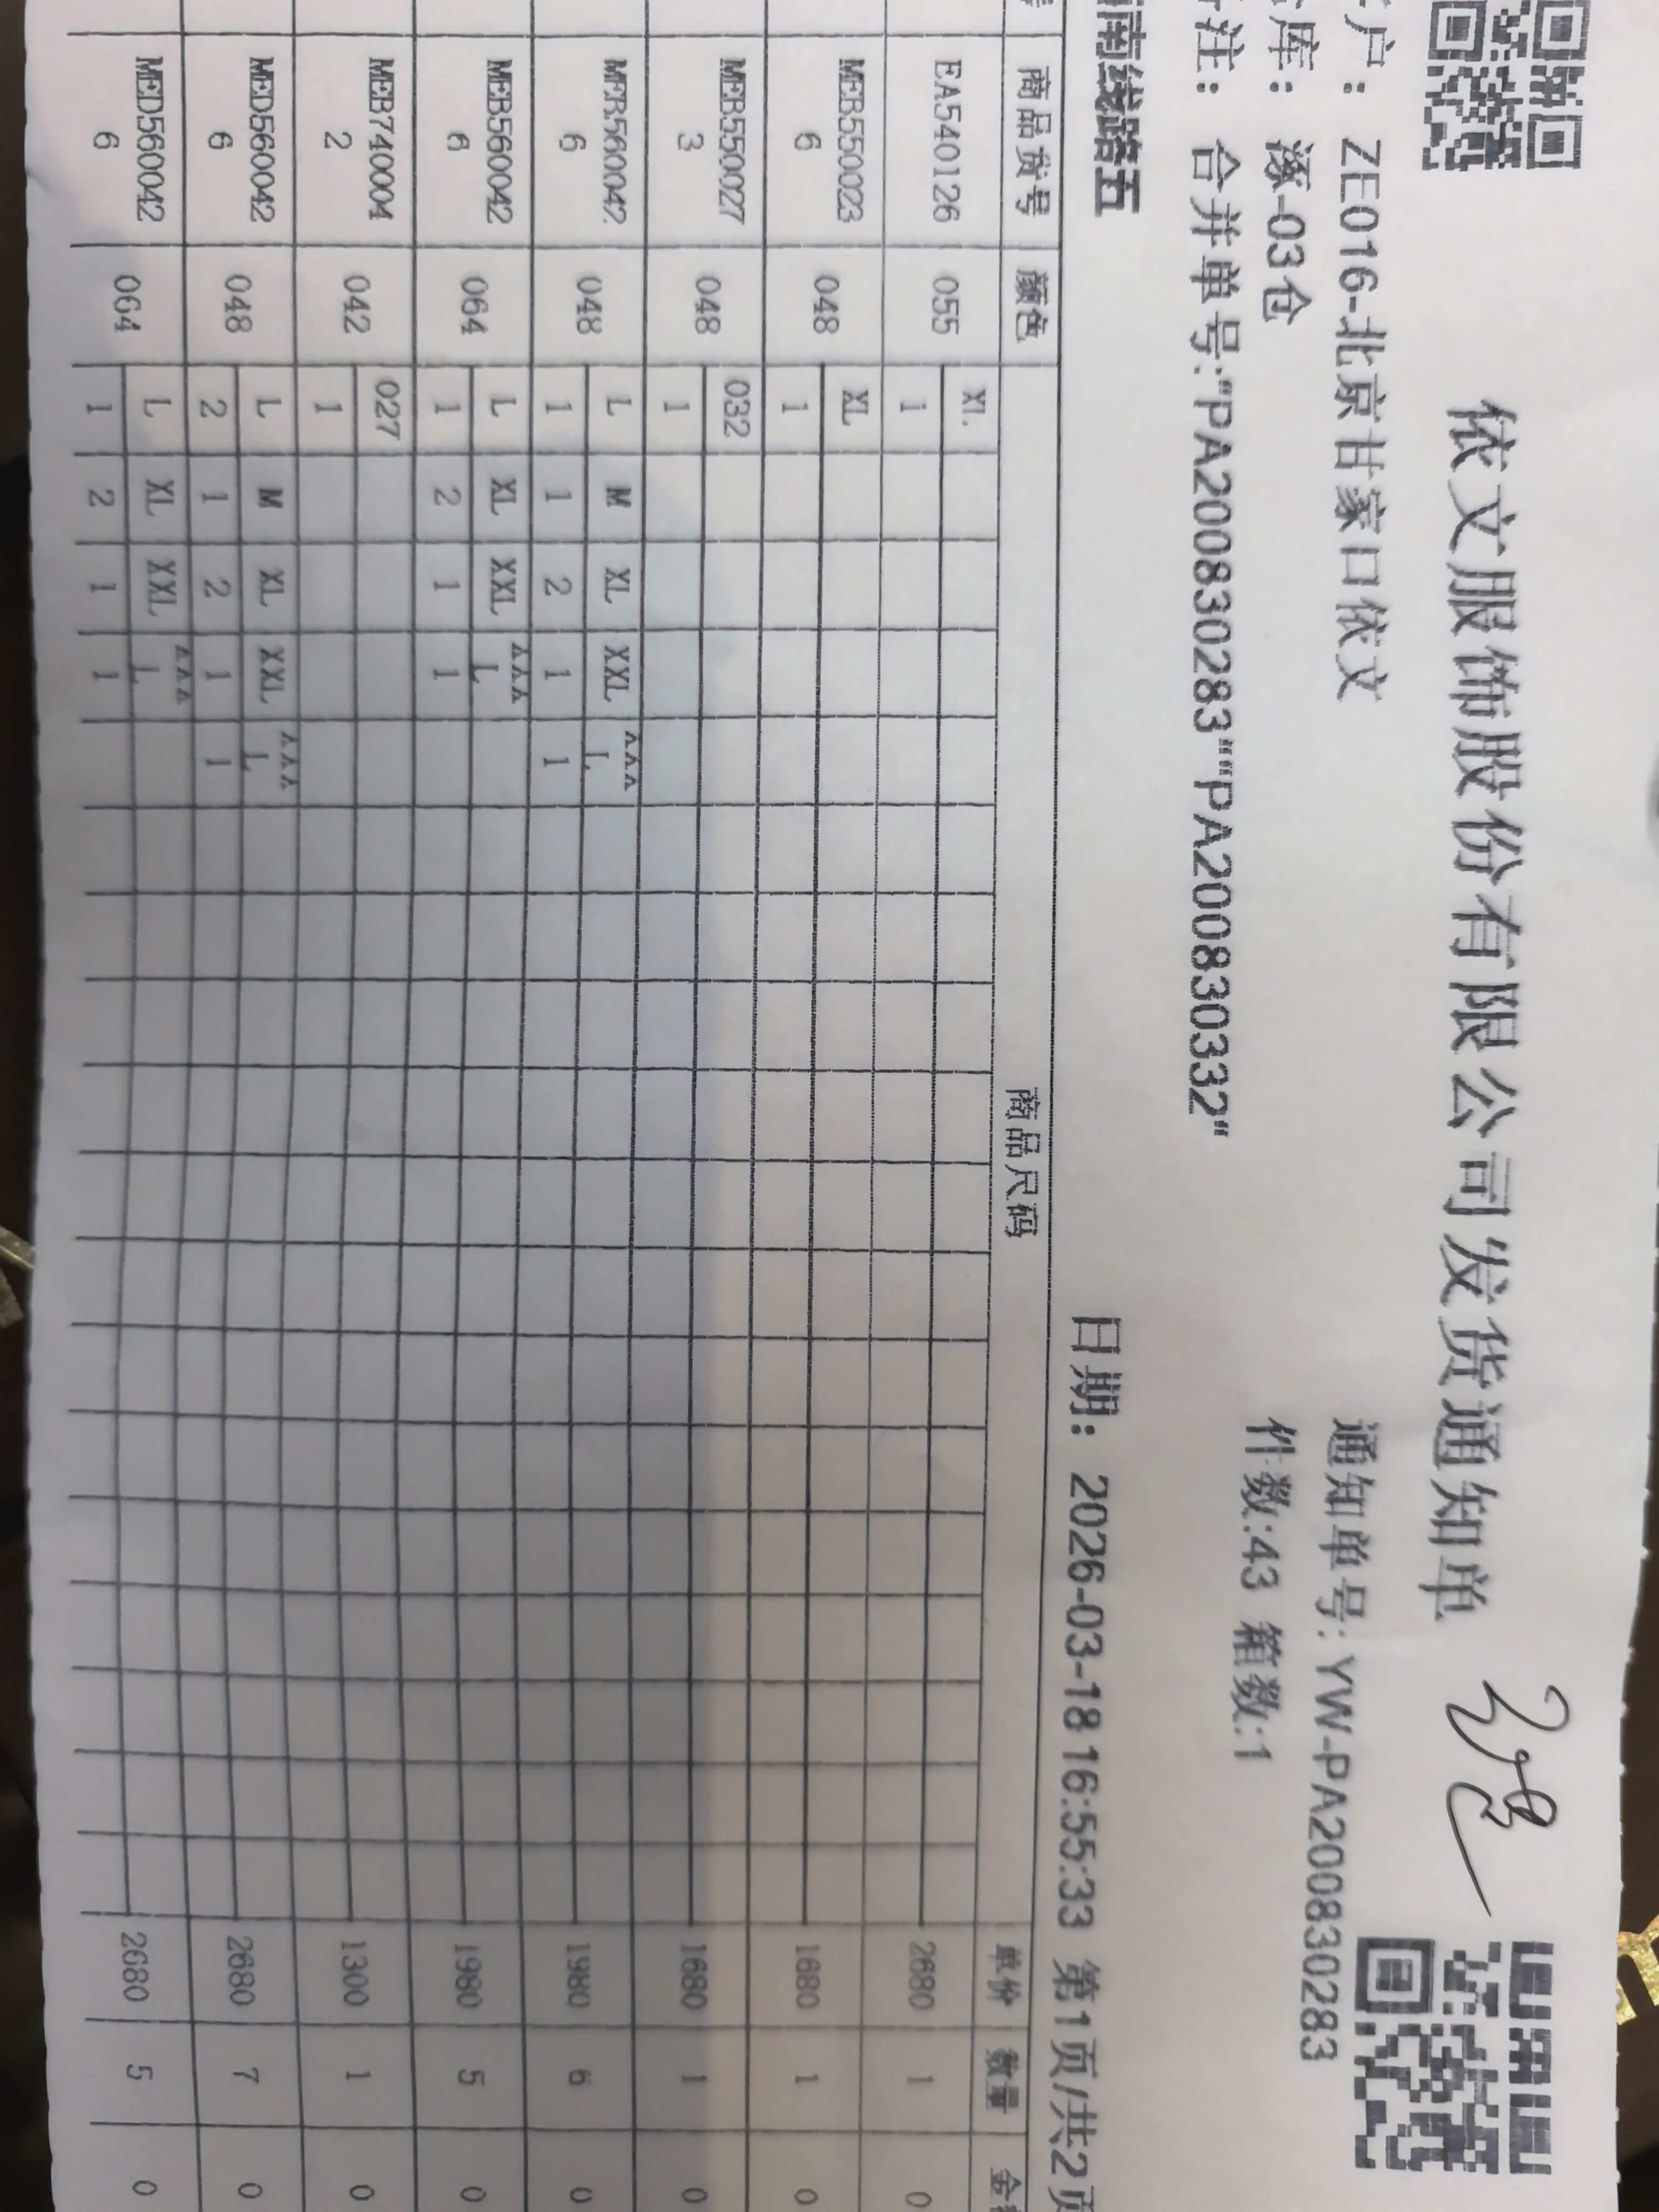 依文服饰股份有限公司发货通知单
户： ZE016-北京甘家口依文 通知单号: YW-PA200830283
库： 涿-03仓 件数:43 箱数:1
注： 合并单号:"PA200830283""PA200830332"
南线路五 日期： 2026-03-18 16:55:33 第1页/共2页
商品货号 颜色 商品尺码 单价 数量 金
EA540126 055 XL 2680 1 0
1
MEB550023 048 XL 1680 1 0
6 1
MEB550027 048 032 1680 1 0
3 1
MEB560042 048 L M XL XXL L 1980 6 0
6 1 1 2 1 1
MEB560042 064 L XL XXL L 1980 5 0
6 1 2 1 1
MEB740004 042 027 1300 1 0
2 1
MED560042 048 L M XL XXL L 2680 7 0
6 2 1 2 1 1
MED560042 064 L XL XXL L 2680 5 0
6 1 2 1 1